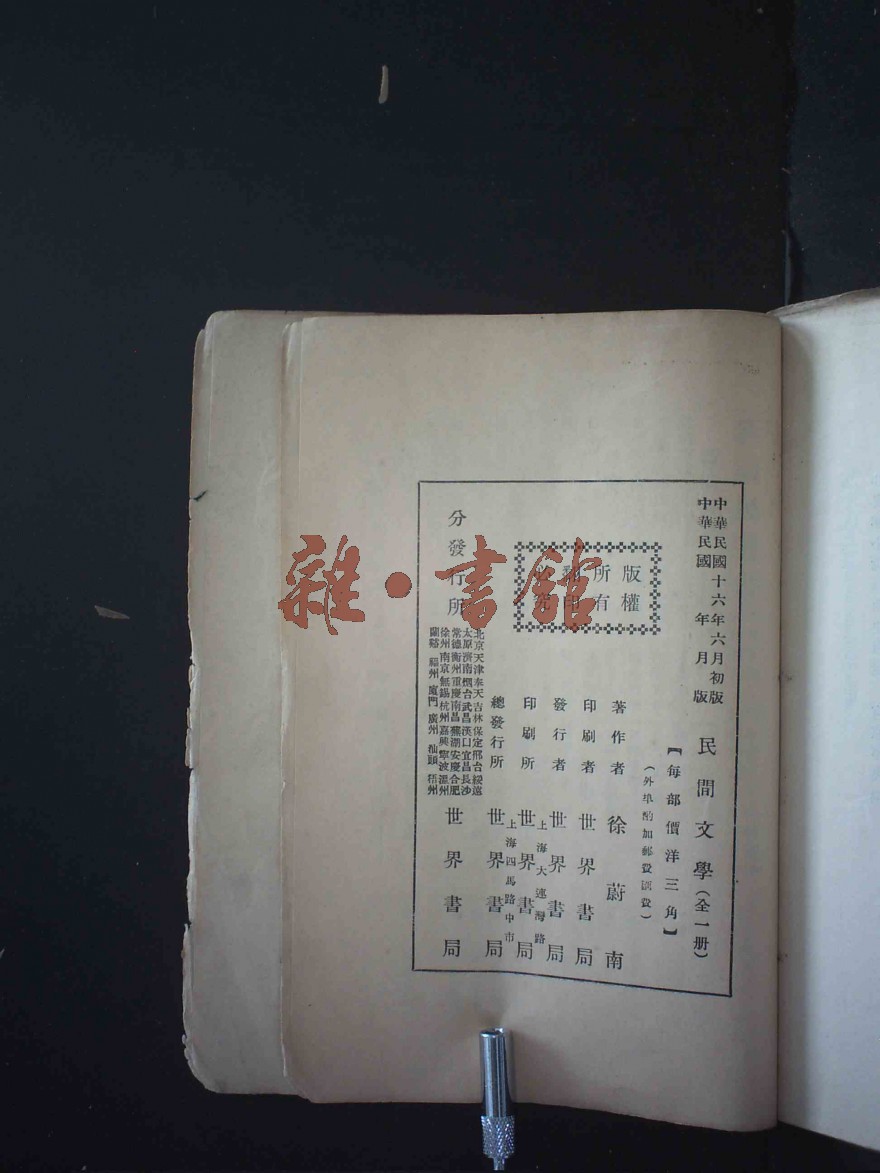 中華民國十六年六月初版
中華民國　年　月　版
民間文學（全一册）
【每部價洋三角】
（外埠酌加郵費匯費）
版權
所有
翻印
必究
著作者　徐蔚南
印刷者　世界書局
發行者　世界書局
上海大連灣路
印刷所　世界書局
上海四馬路中市
總發行所　世界書局
分發行所
北京天津奉天吉林保定邢台綏遠
太原濟南烟台武昌漢口宜昌長沙
常德衡州重慶南昌蕪湖安慶合肥
徐州南京無錫杭州嘉興寧波溫州
蘭谿福州廈門廣州汕頭梧州
世界書局
雜·書館